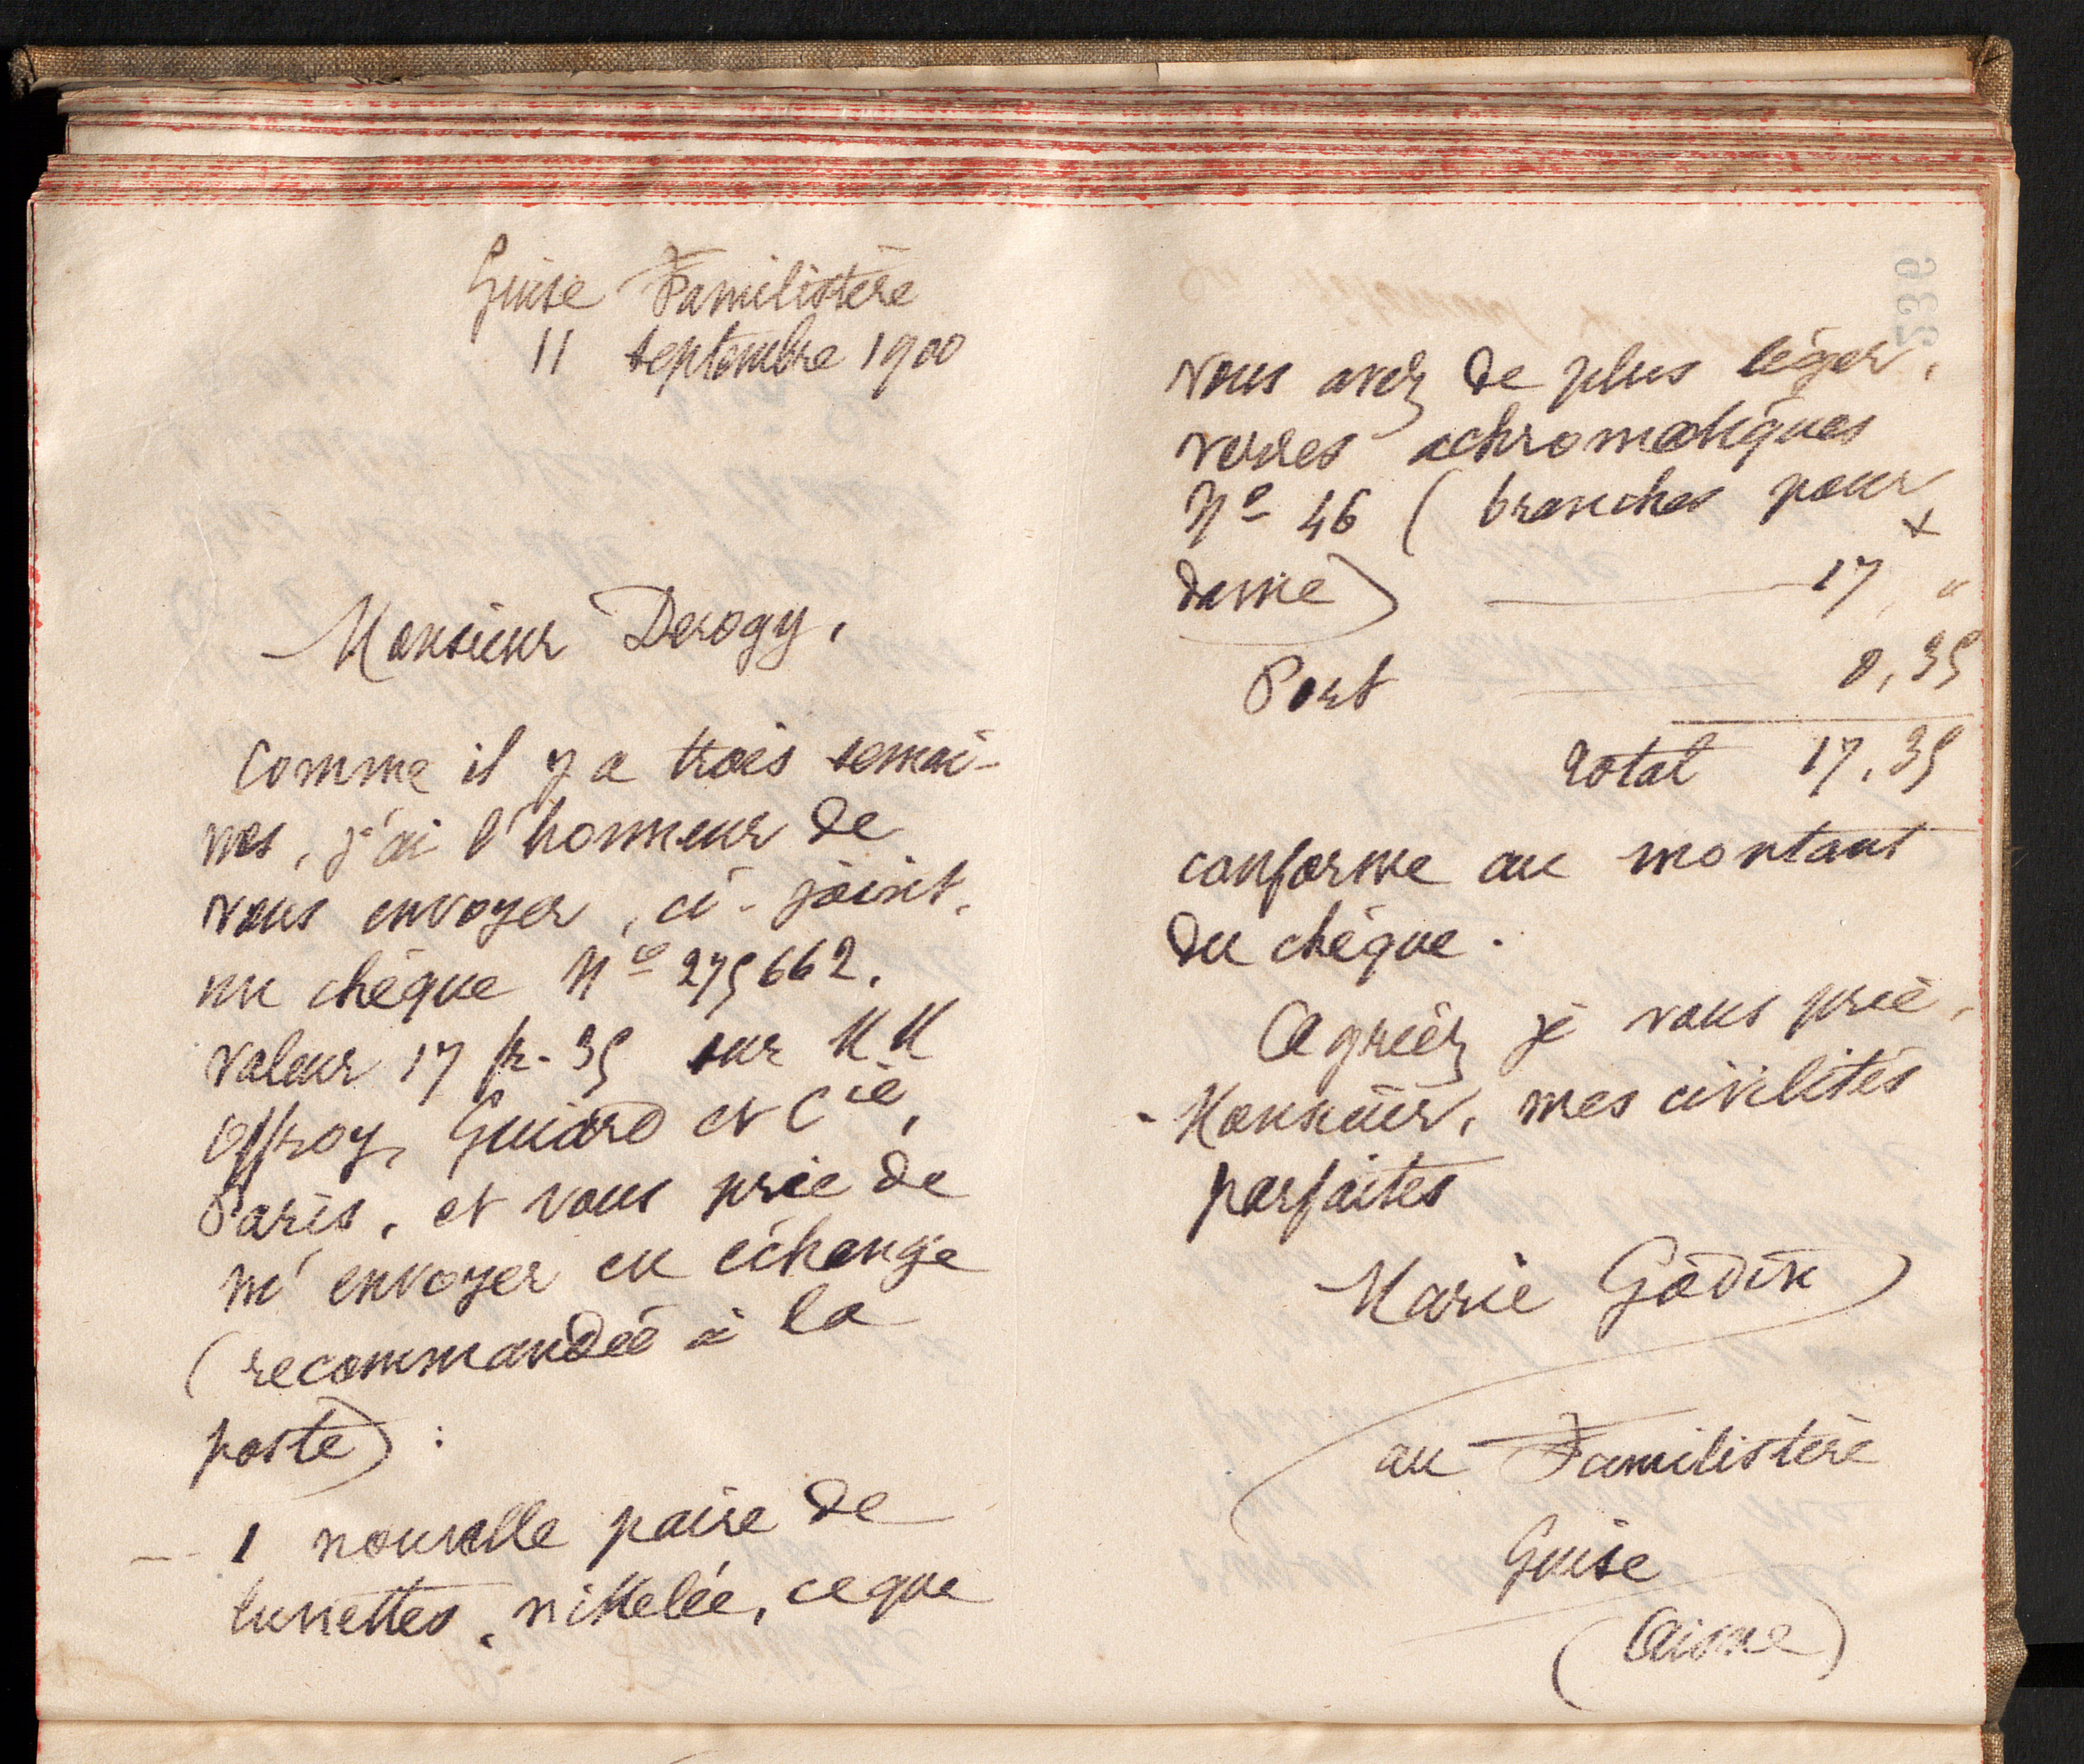 Guise Familistère
11 septembre 1900
Monsieur Derogy,
Comme il y a trois semai-
nes, j'ai l'honneur de
vous envoyer, ci-joint,
un chèque Nº 275662.
valeur 17 fr. 35 sur MM
Offroy, Guiard et Cie,
Paris, et vous prie de
m'envoyer en échange
(recommandée à la
poste) :
1 nouvelle paire de
lunettes, nikelée, ce que
vous avez de plus léger,
verres achromatiques
Nº 46 (branches pour
dame) 17, "
Port 0,35
Total 17,35
conforme au montant
du chèque.
Agréez je vous prie,
Monsieur, mes civilités
parfaites
Marie Godin
au Familistère
Guise
(Aisne)
236